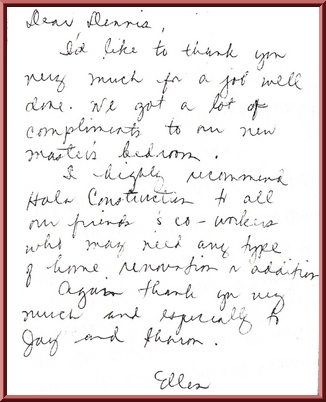 Dear Dennis,
I'd like to thank you
very much for a job well
done. We got a lot of
compliments to our new
master's bedroom.
I highly recommend
Hala Construction to all
our friends & co-workers
who may need any type
of home renovation or addition
Again thank you very
much and especially to
Jay and Sharon.
Ellen